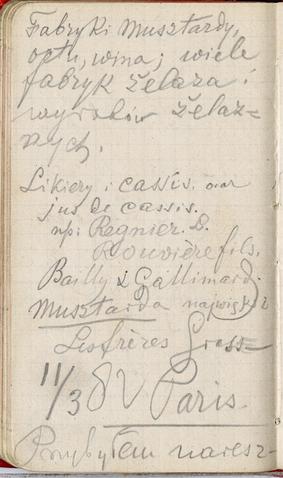 Fabryki Musztardy,
octu, wina; wiele
fabryk żelaza i
wyrobów żelaz=
nych.
Likiery i cassis. oraz
jus de cassis.
np: Regnier. D.
Rouvière fils.
Bailly & Gallimard.
Musztarda najwięk
Les frères Grass
11/3 82 Paris
Przybyłem naresz-